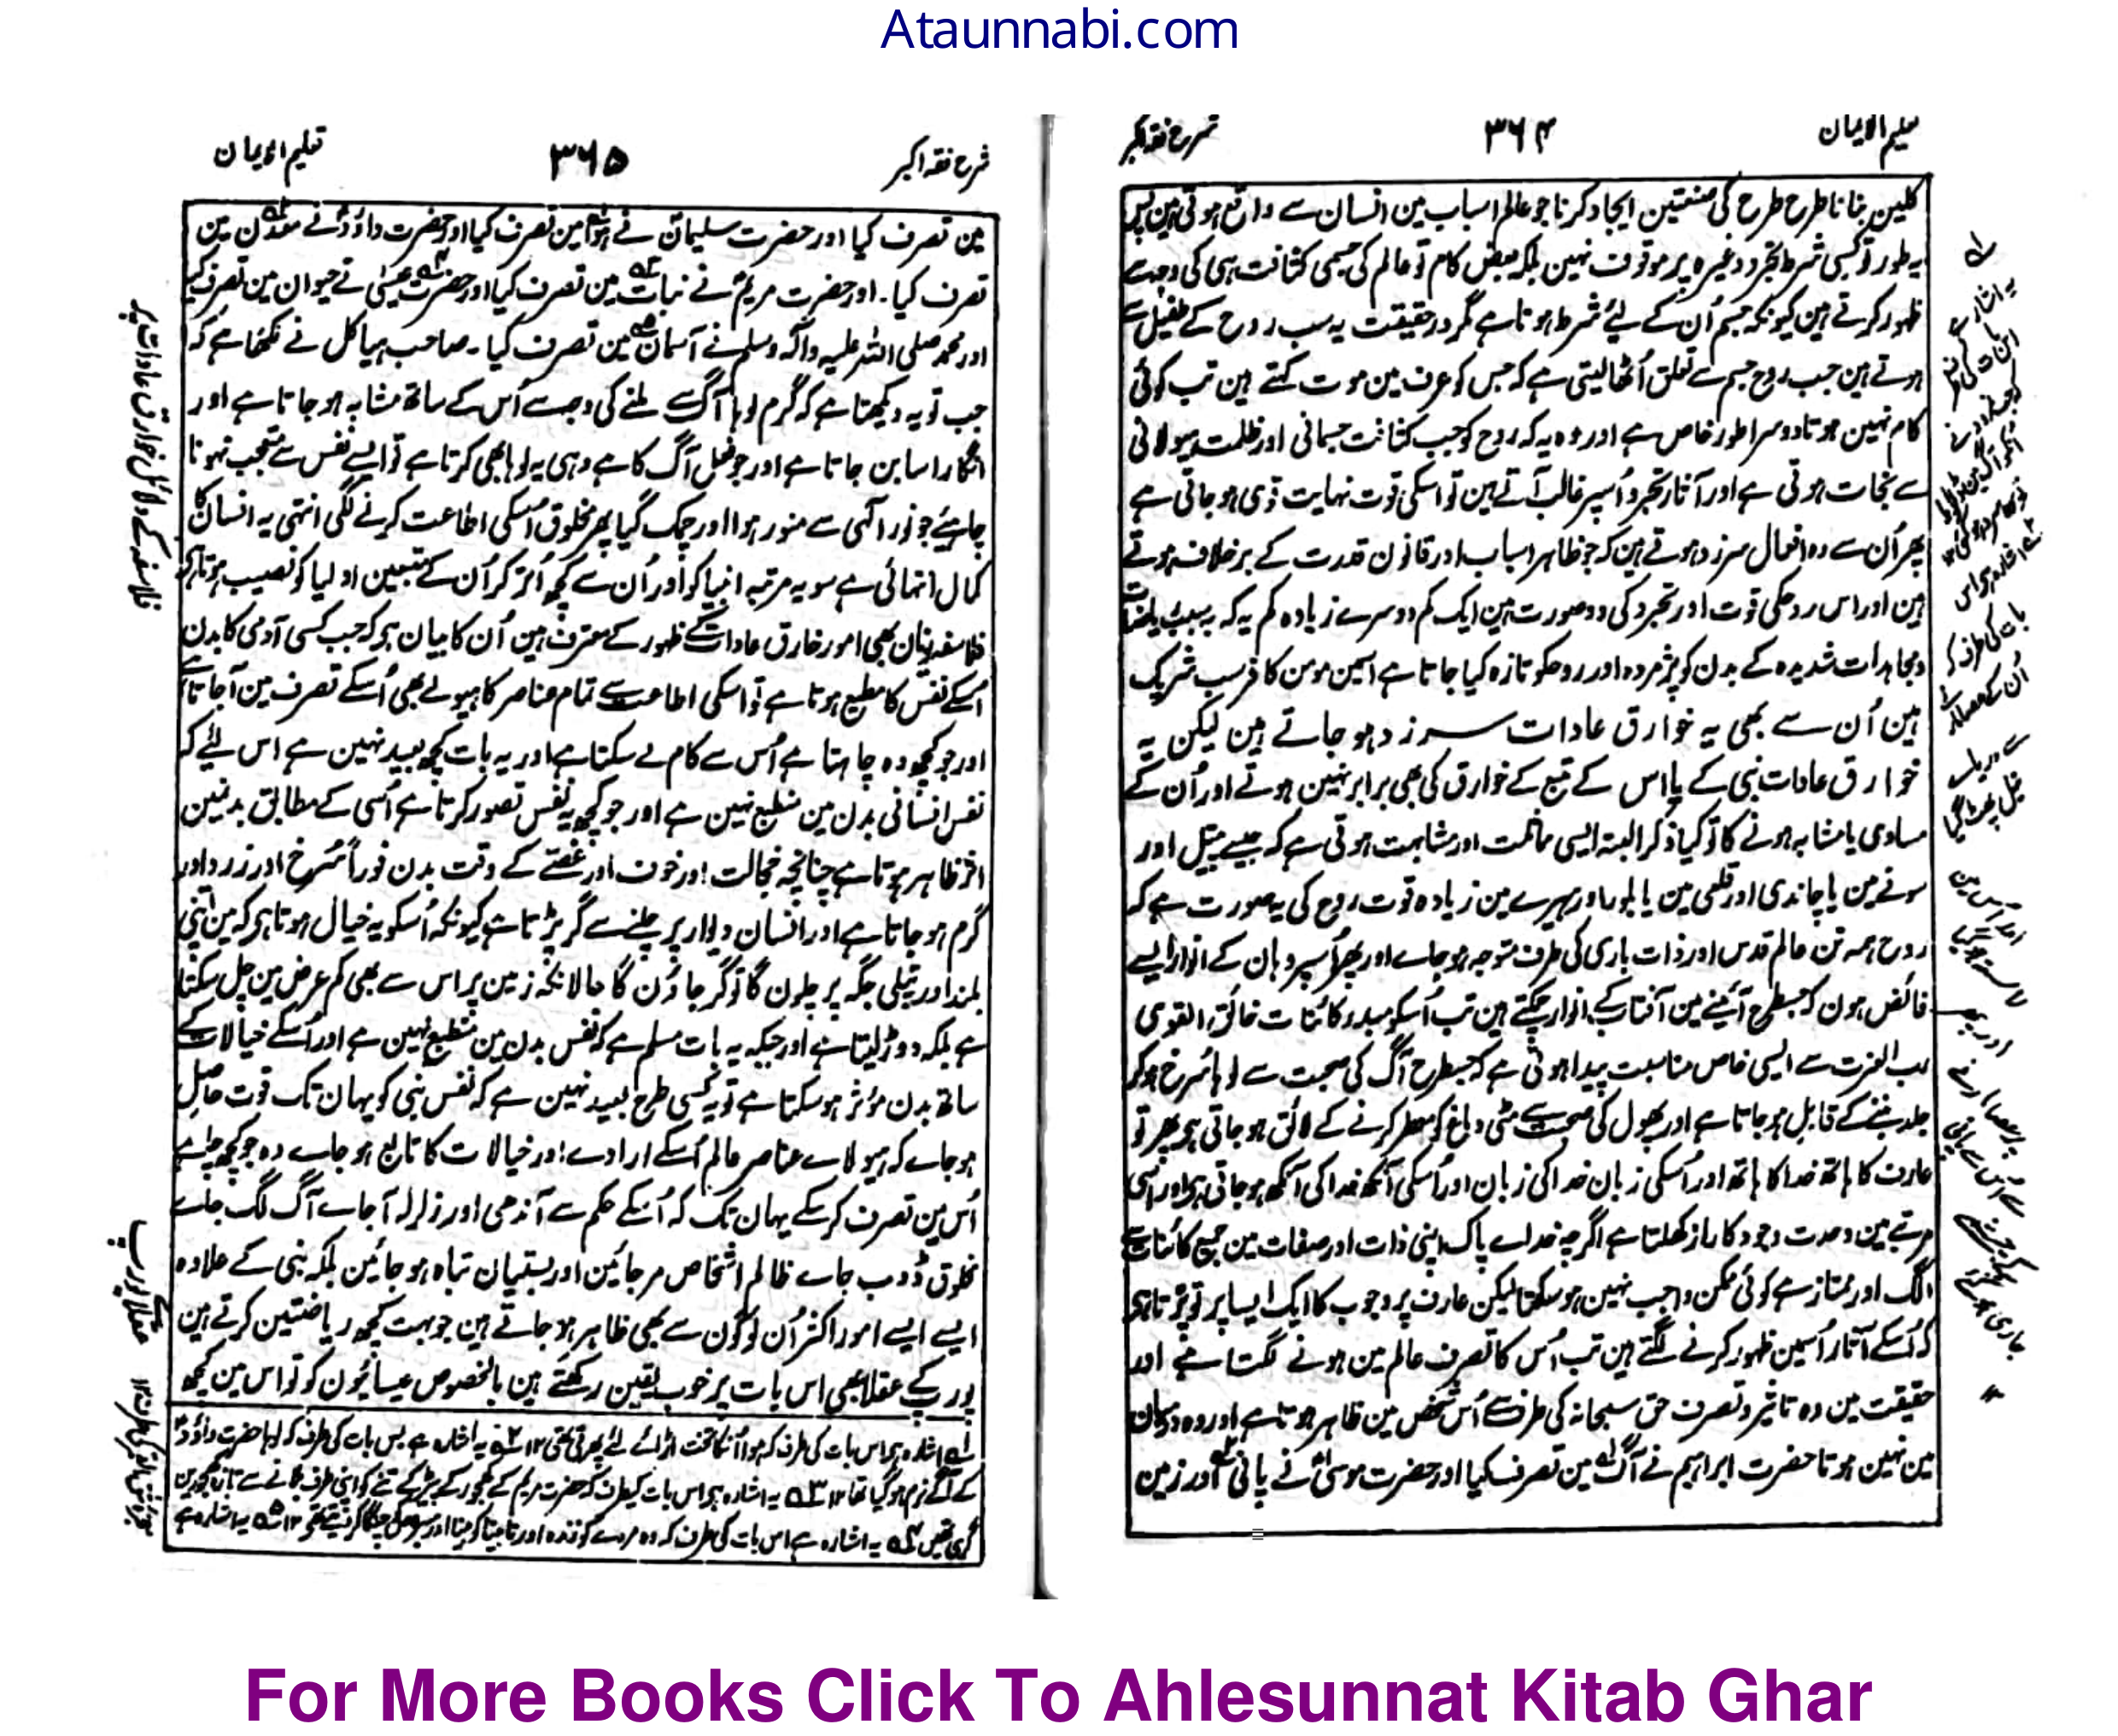 Ataunnabi.com
تعلیم الایمان
۳۶۴
شرح فقہ اکبر
کلین بنانا طرح طرح کی صنعتین ایجاد کرنا جو عالم اسباب مین انسان سے واقع ہوتی ہین پس
یہ طور تو کسی شرط تجرد وغیرہ پر موقوف نہین بلکہ بعض کام تو عالم کی جسمی کثافت ہی کی وجہ سے
ظہور کرتے ہین کیونکہ جسم اُن کے لیے شرط ہوتا ہے مگر درحقیقت یہ سب روح کے طفیل سے
ہوتے ہین جب روح جسم سے تعلق اُٹھا لیتی ہے کہ جس کو عرف مین موت کہتے ہین تب کوئی
کام نہین ہوتا دوسرا طور خاص ہے اور وہ یہ کہ روح کو جب کثافت جسمانی اور ظلمت ہیولانی
سے نجات ہوتی ہے اور آثار تجرد اُسپر غالب آتے ہین تو اسکی قوت نہایت قوی ہو جاتی ہے
پھر اُن سے وہ افعال سرزد ہوتے ہین کہ جو ظاہر اسباب اور قانون قدرت کے برخلاف ہوتے
ہین اور اس روحکی قوت اور تجرد کی دو صورت ہین ایک کم دوسرے زیادہ کم یہ کہ بسبب ریاضات
و مجاہدات شدیدہ کے بدن کو پژمردہ اور روحکو تازہ کیا جاتا ہے اسمین مومن کافر سب شریک
ہین اُن سے بھی یہ خوارق عادات سرزد ہو جاتے ہین لیکن یہ
خوارق عادات نبی کے یا اس کے تبع کے خوارق کی بھی برابر نہین ہوتے اور اُن کے
مساوی یا مشابہ ہونے کا تو کیا ذکر البتہ ایسی مماثلت اور مشابہت ہوتی ہے کہ جیسے پیتل اور
سونے مین یا چاندی اور قلعی مین یا بلور اور ہیرے مین زیادہ قوت روح کی یہ صورت ہے کہ
روح ہمہ تن عالم قدس اور ذات باری کی طرف متوجہ ہو جاے اور پھر اُسپر وہان کے انوار ایسے
فائض ہون کہ جسطرح آئینے مین آفتاب کے انوار چمکتے ہین تب اُسکو مبدء کائنات خالق القوی
رب العزت سے ایسی خاص مناسبت پیدا ہوتی ہے کہ جسطرح آگ کی صحبت سے لوہا سُرخ ہو کر
جلد بننے کے قابل ہو جاتا ہے اور پھول کی صحبت سے مٹی دماغ کو معطر کرنے کے لائق ہو جاتی ہے پھر تو
عارف کا ہاتھ خدا کا ہاتھ اور اُسکی زبان خدا کی زبان اور اُسکی آنکھ خدا کی آنکھ ہو جاتی ہے اور اسی
مرتبے مین وحدت وجود کا راز کھلتا ہے اگرچہ خداے پاک اپنی ذات اور صفات مین جمیع کائنات سے
الگ اور ممتاز ہے کوئی ممکن واجب نہین ہو سکتا لیکن عارف پر وجوب کا ایک ایسا پرتو پڑتا ہے
کہ اُسکے آثار اُسمین ظہور کرنے لگتے ہین تب اُس کا تصرف عالم مین ہونے لگتا ہے اور
حقیقت مین وہ تاثیر و تصرف حق سبحانہ کی طرف سے اُس شخص مین ظاہر ہوتا ہے اور وہ درمیان
مین نہین ہوتا حضرت ابراہیم نے آگ مین تصرف کیا اور حضرت موسیٰ نے پانی اور زمین
یہ اشارہ ہے
اس بات کی طرف
بات کی طرف کہ
شرح فقہ اکبر
۳۶۵
تعلیم الایمان
مین تصرف کیا اور حضرت سلیمان نے ہوا مین تصرف کیا اور حضرت داؤد نے معدن مین
تصرف کیا۔ اور حضرت مریم نے نبات مین تصرف کیا اور حضرت عیسیٰ نے حیوان مین تصرف کیا
اور محمد صلی اللہ علیہ وآلہ وسلم نے آسمان مین تصرف کیا۔ صاحب ہیاکل نے لکھا ہے کہ
جب تو یہ دیکھتا ہے کہ گرم لوہا آگ سے ملنے کی وجہ سے اُس کے ساتھ مشابہ ہو جاتا ہے اور
انگارا سا بن جاتا ہے اور جو فعل آگ کا ہے وہی یہ لوہا بھی کرتا ہے تو ایسے نفس سے تعجب نہونا
چاہیئے جو نور الٰہی سے منور ہوا اور چمک گیا پھر مخلوق اُسکی اطاعت کرنے لگی انتہی یہ انسان کا
کمال انتہائی ہے سو یہ مرتبہ انبیا کو اور اُن سے کچھ اُتر کر اُن کے متبعین اولیا کو نصیب ہوتا ہے
فلاسفہ یونان بھی امور خارق عادات کے ظہور کے معترف ہین اُن کا بیان ہے کہ جب کسی آدمی کا بدن
اُسکے نفس کا مطیع ہوتا ہے تو اسکی اطاعت سے تمام عناصر کا ہیولے بھی اُسکے تصرف مین آجاتا ہے
اور جو کچھ وہ چاہتا ہے اُس سے کام لے سکتا ہے اور یہ بات کچھ بعید نہین ہے اس لیے کہ
نفس انسانی بدن مین منطبع نہین ہے اور جو کچھ یہ نفس تصور کرتا ہے اُسی کے مطابق بدنمین
اثر ظاہر ہوتا ہے چنانچہ خجالت اور خوف اور غصے کے وقت بدن فوراً سُرخ اور زرد اور
گرم ہو جاتا ہے اور انسان دیوار پر چلنے سے گر پڑتا ہے کیونکہ اُسکو یہ خیال ہوتا ہے کہ مین اتنی
بلند اور پتلی جگہ پر چلون گا تو گر جاؤن گا حالانکہ زمین پر اس سے بھی کم عرض مین چل سکتا
ہے بلکہ دوڑ لیتا ہے اور جبکہ یہ بات مسلم ہے کہ نفس بدن مین منطبع نہین ہے اور اُسکے خیالات کے
ساتھ بدن مؤثر ہو سکتا ہے تو یہ کسی طرح بعید نہین ہے کہ نفس نبی کو یہان تک قوت حاصل
ہو جاے کہ ہیولاے عناصر عالم اُسکے ارادے اور خیالات کا تابع ہو جاے وہ جو کچھ چاہے
اُس مین تصرف کر سکے یہان تک کہ اُسکے حکم سے آندھی اور زلزلہ آجاے آگ لگ جاے
مخلوق ڈوب جاے ظالم اشخاص مرجائین اور بستیان تباہ ہو جائین بلکہ نبی کے علاوہ
ایسے ایسے امور اکثر اُن لوگون سے بھی ظاہر ہو جاتے ہین جو بہت کچھ ریاضتین کرتے ہین
یورپ کے عقلا بھی اس بات پر خوب یقین رکھتے ہین بالخصوص عیسائیون کو تو اس مین کچھ
لہ اشارہ ہے اس بات کی طرف کہ ہوا اُنکا تخت اڑائے لئے پھرتی تھی ۱۲ یہ اشارہ ہے اس بات کی طرف کہ لوہا حضرت داؤد
کے آگے نرم ہو گیا تھا ۱۲ یہ اشارہ ہے اس بات کیطرف کہ حضرت مریم کے کھجور کے پیڑ کے تنے کو اپنی طرف ہلانے سے تازہ کھجورین
گری تھین یہ اشارہ ہے اس بات کی طرف کہ وہ مردے کو زندہ اور نابینا کو بینا اور مبروص کو چنگا کر دیتے تھے ۱۲ یہ اشارہ ہے
فلاسفہ کے دلائل خوارق عادات پر
عقلاے یورپ
For More Books Click To Ahlesunnat Kitab Ghar